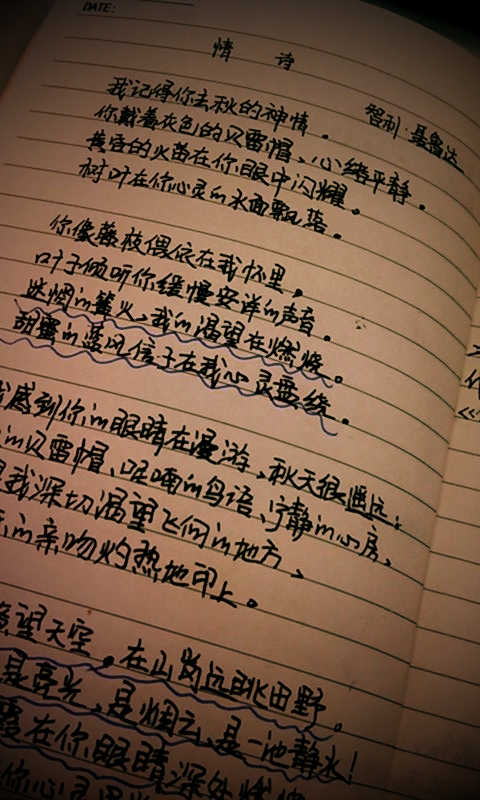 DATE:
情 诗
智利·聂鲁达
我记得你去秋的神情。
你戴着灰色的贝雷帽、心绪平静。
黄昏的火苗在你眼中闪耀。
树叶在你心灵的水面飘落。
你像藤枝偎依在我怀里,
叶子倾听你缓慢安详的声音。
迷惘的篝火,我的渴望在燃烧。
甜蜜的蓝风信子在我心灵盘绕。
我感到你的眼睛在漫游,秋天很遥远:
的贝雷帽、呢喃的鸟语、宁静的心房,
是我深切渴望飞向的地方,
的亲吻灼热地印上。
望天空。在山岗远眺田野。
是亮光、是烟云、是一池静水!
在你眼睛深处燃烧
你心灵